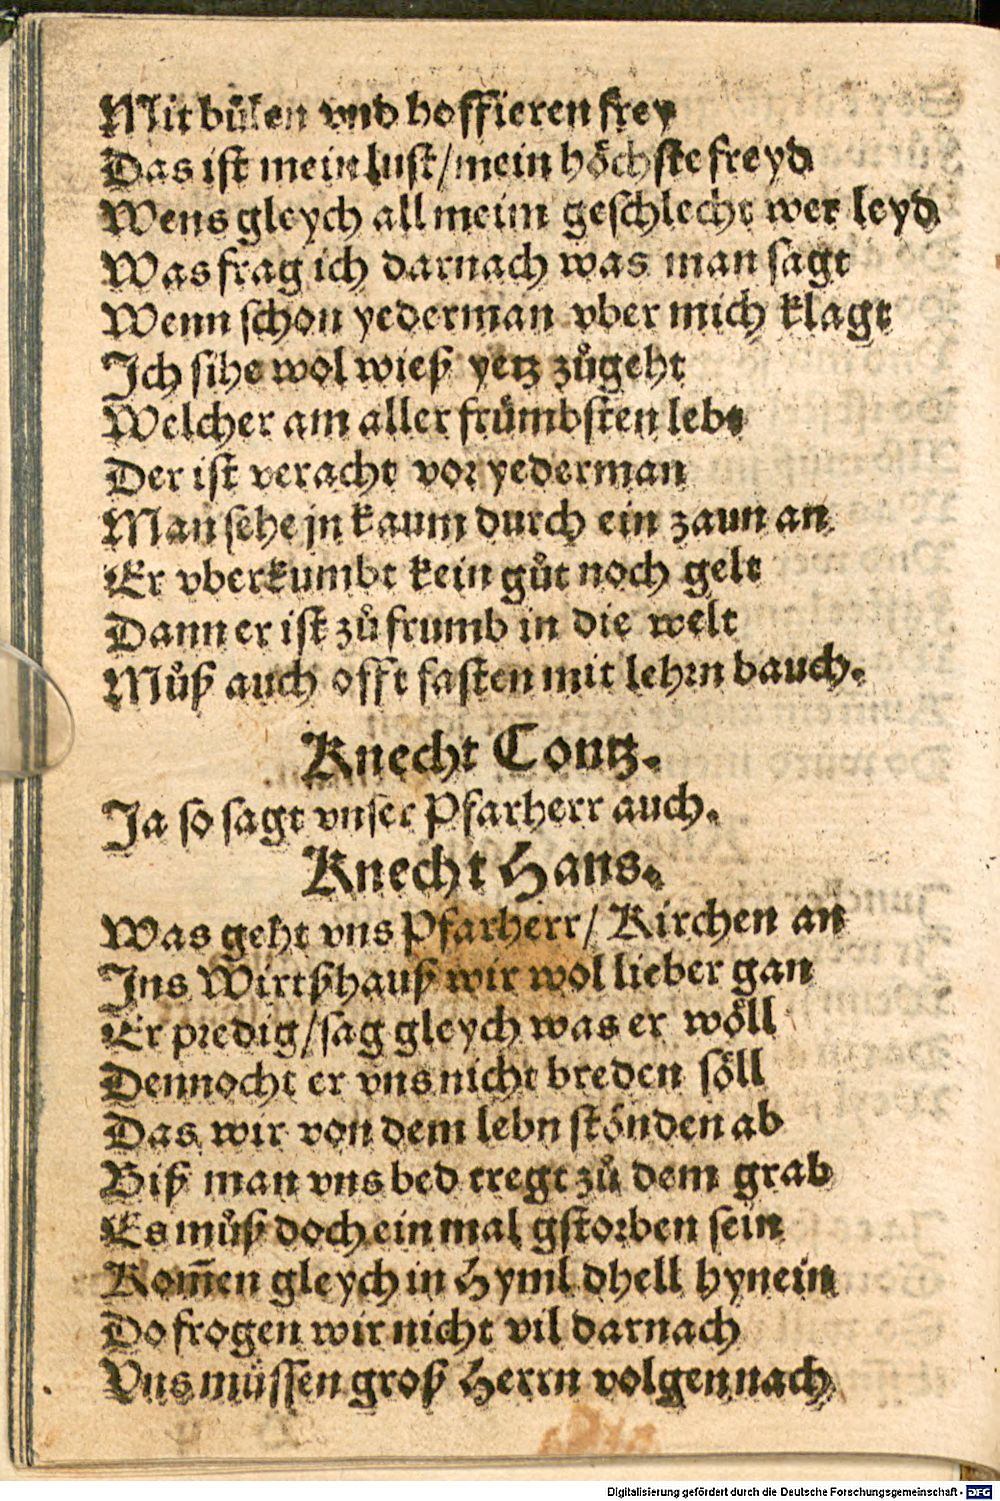 Mit bůlen vnd hoffieren frey
Das ist mein lust/mein höchste freyd
Wens gleych all meim geschlecht wer leyd
Was frag ich darnach was man sagt
Wenn schon yederman vber mich klagt
Ich sihe wol wieß yetz zůgeht
Welcher am aller frümbsten lebt
Der ist veracht vor yederman
Man sehe jn kaum durch ein zaun an
Er vberkumbt kein gůt noch gelt
Dann er ist zů frumb in die welt
Můß auch offt fasten mit lehrn bauch.
Knecht Contz.
Ja so sagt vnser Pfarherr auch.
Knecht Hans.
Was geht vns Pfarherr/ Kirchen an
Ins Wirtßhauß wir wol lieber gan
Er predig/sag gleych was er wöll
Dennocht er vns nicht breden söll
Das wir von dem lebn stönden ab
Biß man vns bed tregt zů dem grab
Es můß doch ein mal gstorben sein
Kom̄en gleych in Hyml dhell hynein
Do frogen wir nicht vil darnach
Vns müssen groß Herrn volgen nach
Digitalisierung gefördert durch die Deutsche Forschungsgemeinschaft - DFG